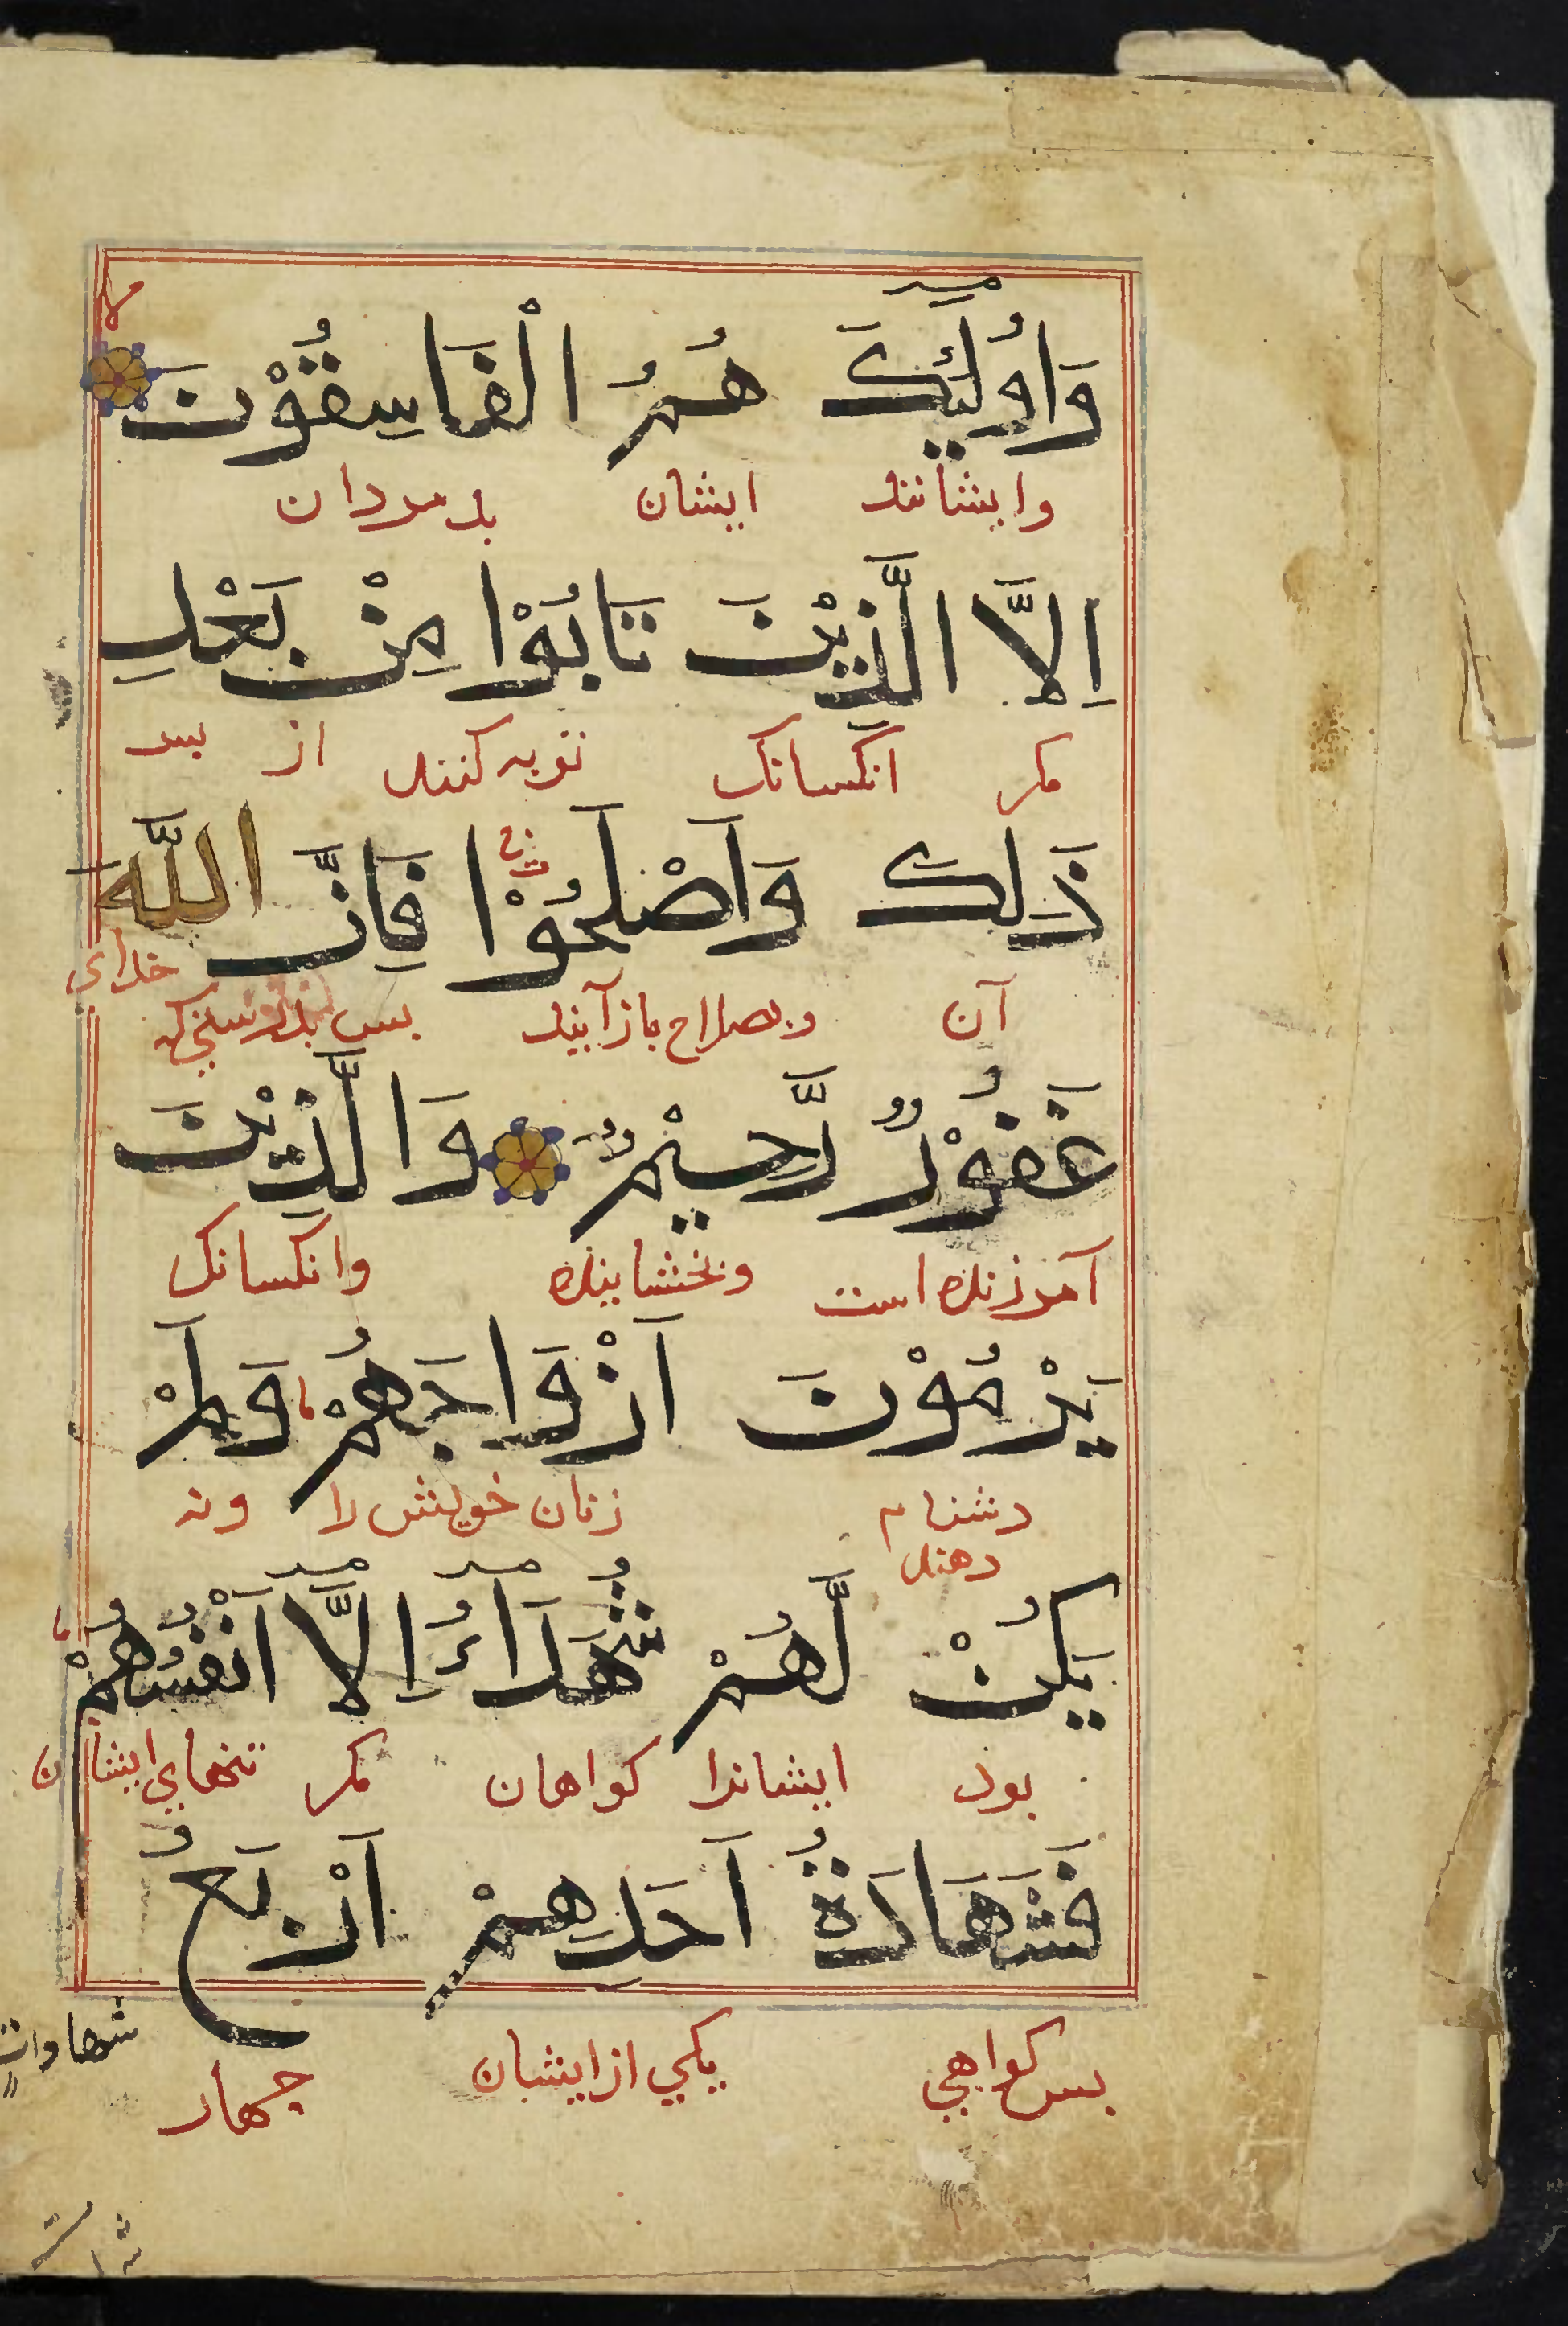 وَاُولٰٓئِكَ هُمُ الْفَاسِقُوْنَ لا
وایشانند ایشان بدمردان
اِلَّا الَّذِيْنَ تَابُوْا مِنْ بَعْدِ
مکر انکسانک توبه کنند از بس
ذٰلِكَ وَاَصْلَحُوْا فَاِنَّ اللّٰهَ
آن وبصلاح بازآیند بس بدرستی که خدای
غَفُوْرٌ رَّحِيْمٌ وَالَّذِيْنَ
آمرزنده است وبخشاینده وانکسانک
يَرْمُوْنَ اَزْوَاجَهُمْ وَلَمْ
دشنام دهند زنان خویش را ونه
يَكُنْ لَّهُمْ شُهَدَآءُ اِلَّآ اَنْفُسُهُمْ
بود ایشانرا کواهان مکر تنهای ایشان
فَشَهَادَةُ اَحَدِهِمْ اَرْبَعُ
بس کواهی یکی از ایشان جهار
شهادات